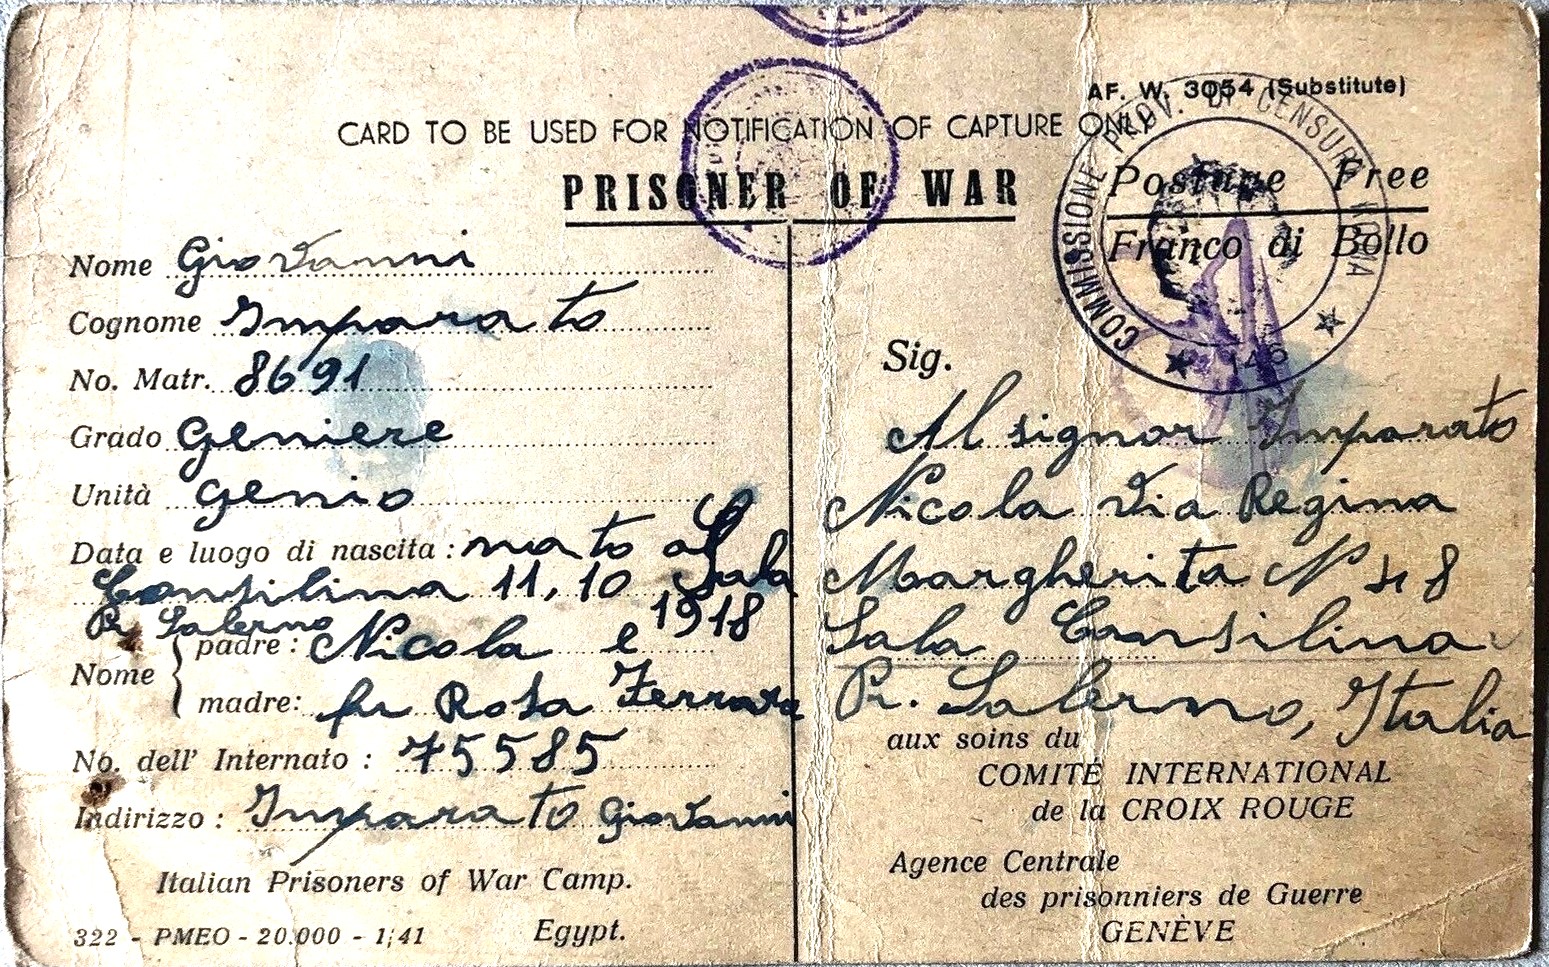 AF. W. 3054 (Substitute)
CARD TO BE USED FOR NOTIFICATION OF CAPTURE ONLY
PRISONER OF WAR
Postage Free
Franco di Bollo
COMMISSIONE PROV. DI CENSURA
146
Nome Giovanni
Cognome Imparato
No. Matr. 8691
Grado Geniere
Unità genio
Data e luogo di nascita: nato a Sala
Consilina 11, 10 1918
Pr. Salerno
Nome
padre: Nicola e
madre: fu Rosa Ferrara
No. dell' Internato: 75585
Indirizzo: Imparato Giovanni
Italian Prisoners of War Camp.
Egypt.
322 - PMEO - 20.000 - 1;41
Sig.
Al signor Imparato
Nicola Via Regina
Margherita N 48
Sala Consilina
Pr. Salerno, Italia
aux soins du
COMITÉ INTERNATIONAL
de la CROIX ROUGE
Agence Centrale
des prisonniers de Guerre
GENÈVE